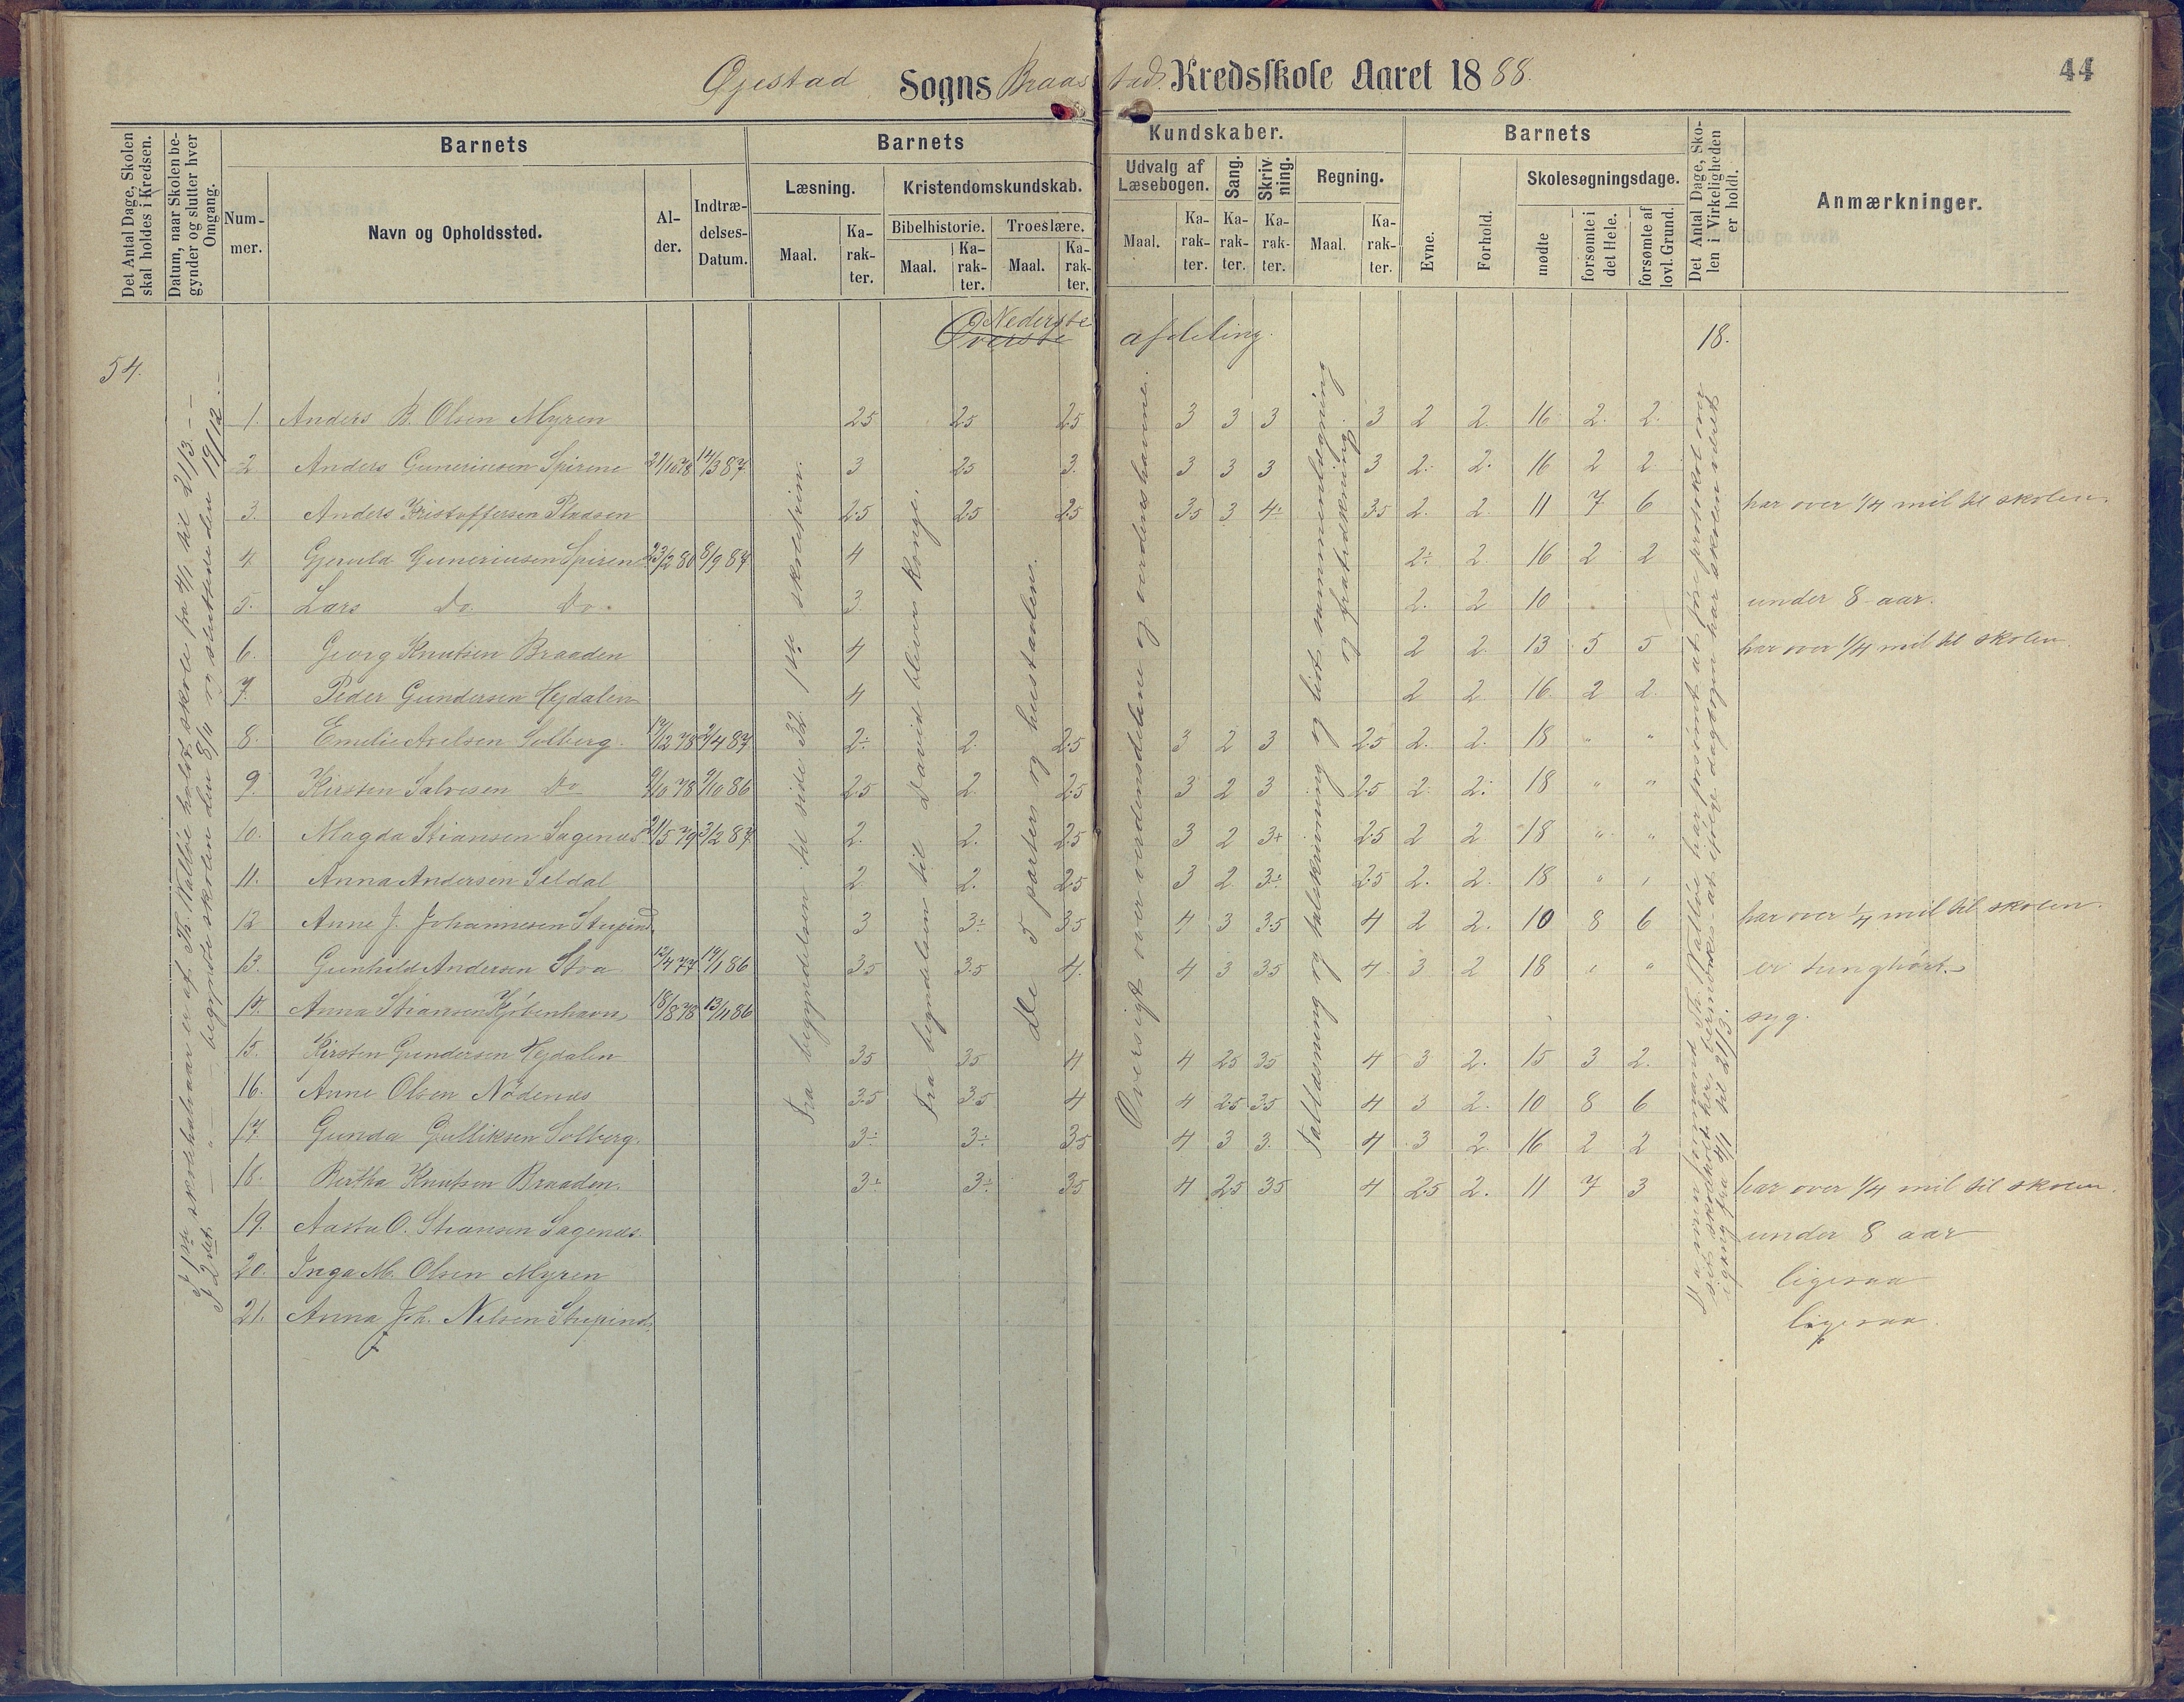 Øjestad Sogns Braastad Kredsskole Aaret 1888.
44
Det Antal Dage, Skolen skal holdes i Kredsen.
Datum, naar Skolen begynder og slutter hver Omgang.
Barnets
Nummer.
Navn og Opholdssted.
Alder.
Indtrædelses-Datum.
Barnets Kundskaber.
Læsning.
Maal. Karakter.
Kristendomskundskab.
Bibelhistorie.
Maal. Karakter.
Troeslære.
Maal. Karakter.
Udvalg af Læsebogen.
Maal. Karakter.
Sang.
Karakter.
Skrivning.
Karakter.
Regning.
Maal. Karakter.
Barnets
Evne.
Forhold.
Skolesøgningsdage.
mødte
forsømte i det Hele.
forsømte af lovl. Grund.
Det Antal Dage, Skolen i Virkeligheden er holdt.
Anmærkninger.
Øverste Nederste afdeling.
18.
54.
1. Anders B. Olsen Myren 2.5 2.5 2.5 3 3 3 3 2 2. 16 2. 2.
2 Anders Guneriusen Spirene 21/10 78 14/3 87 3 2.5 3. 3 3 3 3 2.- 2. 16 2 2
3. Anders Kristoffersen Pladsen 2.5 2.5 2.5 3.5 3 4÷ 3.5 2. 2. 11 7 6 har over 1/4 mil til skolen.
4 Gjeruld Guneriusen Spirene 23/2 80 8/9 87 4 2÷ 2. 16 2 2
5. Lars Do Do. 3. 2. 2 10 under 8 aar.
6. Georg Knutsen Braaden 4 2 2. 13 5 5 har over 1/4 mil til skolen.
7. Peder Gundersen Hejdalen 4 2 2. 16. 2 2.
8. Emelie Axelsen Solberg. 2÷ 2. 2.5 3 2 3 2.5 2. 2. 18 " "
9. Kirsten Salvesen Do 2.5 2. 2.5 3 2 3 2.5 2. 2. 18 " "
10. Magda Stiansen Sagenæs 21/5 79 3/2 87 2. 2. 2.5 3 2 3+ 2.5 2 2 18 " "
11. Anna Andersen Seldal 2 2. 2.5 3 2 3÷ 2.5 2. 2. 18 " "
12 Anne J. Johannesen Stupind 3 3÷ 3.5 4 3 3.5 4 2 2. 10 8 6 har over 1/4 mil til skolen.
13. Gunhild Andersen Stoa 3.5 3.5 4. 4 3 3.5 4. 3 2 18 " " er tunghørt.
14. Anna Stiansen Kjøbenhavn 18/8 78 13/11 86 syg.
15. Kirsten Gundersen Hejdalen 3.5 3.5 4 4 2.5 3.5 4 3 2. 15 3 2.
16. Anne Olsen Nødenæs 3.5 3.5 4 4 2.5 3.5 4 3 2. 10 8 6
17. Gunda Gulliksen Solberg. 3÷ 3÷ 3.5 4 3 3. 4 3 2. 16 2 2
18. Bertha Knutsen Braaden. 3÷ 3÷ 3.5 4 2.5 3.5 4 2.5 2. 11 7 3 har over 1/4 mil til skolen.
19. Aasta O. Stiansen Sagenæs. under 8 aar
20. Inga M. Olsen Myren ligesaa
21. Anna Joh. Nilsen Stupind. ligesaa.
I 1ste skolehalvaar er af Th. Kalløe holdt skole fra 4/1 til 21/3. –
I 2det – " – begyndte skolen den 8/11 og sluttede den 19/12.
Fra begyndelsen til side 32. 1ste skoletrin.
Fra begyndelsen til David bliver konge.
de 5 parter og hustavlen.
Oversigt over verdensdelene og verdenshavene.
Tallæsning og talskrivning og lidt sammenlægning
og fratrækning.